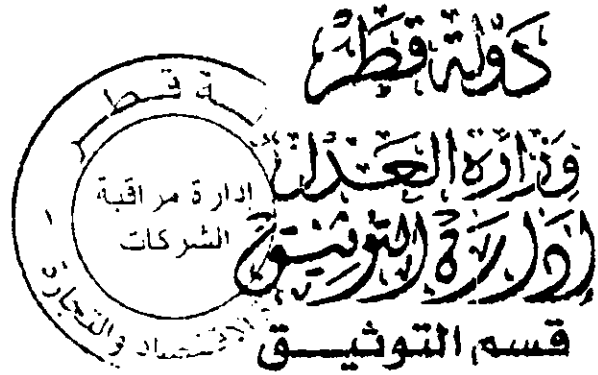 دولة قطر
وزارة العدل
إدارة التوثيق
قسم التوثيــــق
ـة قــطــر
إدارة مراقبة
الشركات
الاقتصاد والتجارة
١